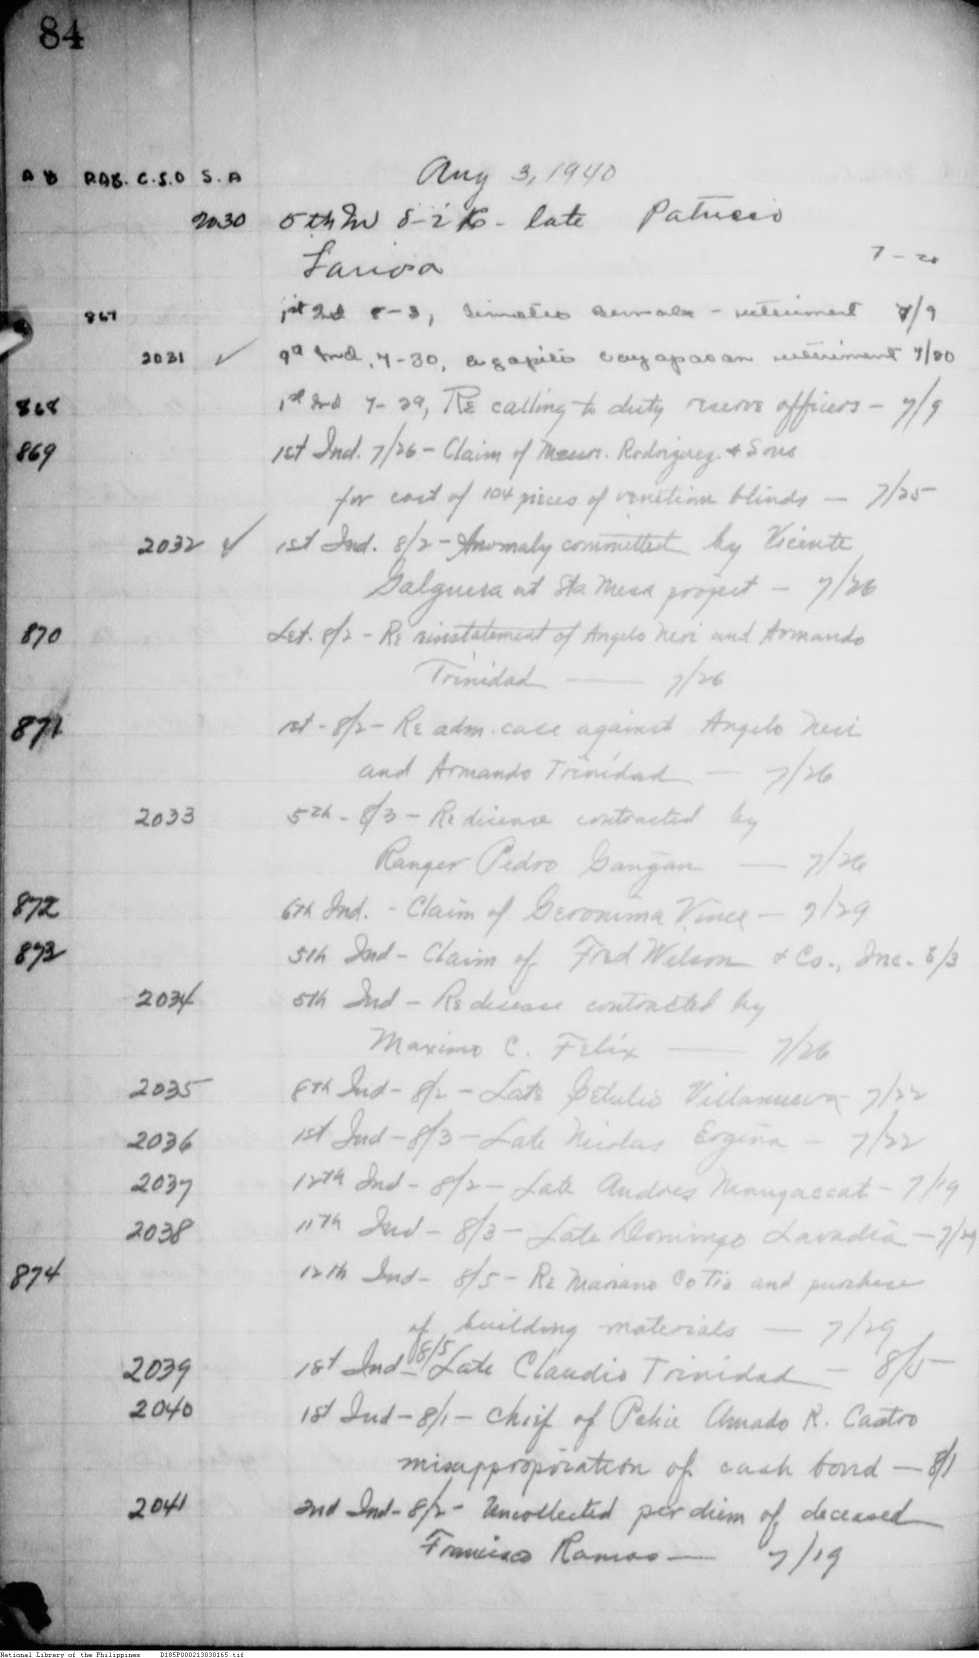 84
Aug 3, 1940
A B P.A.B. C.S.O S.A
2030 5th Ind 8-2 - late Patricio
Lariosa 7-20
867 1st Ind 8-3, - retirement 7/9
2031 ✓ 9th Ind, 7-30, Agapito Cayapasan retirement 7/30
868 1st Ind 7-29, Re calling to duty reserve officers - 7/9
869 1st Ind. 7/26 - Claim of Messrs. Rodriguez & Sons
for cost of 104 pieces of venetian blinds - 7/25
2032 ✓ 1st Ind. 8/2 - Anomaly committed by Vicente
Galguera at Sta Mesa project - 7/26
870 Let. 8/2 - Re reinstatement of Angelo Neri and Armando
Trinidad - 7/26
871 1st - 8/2 - Re adm. case against Angelo Neri
and Armando Trinidad - 7/26
2033 5th - 8/3 - Re disease contracted by
Ranger Pedro Gangan - 7/26
872 6th Ind. - Claim of Geronima Vinea - 7/29
873 5th Ind - Claim of Fred Wilson & Co., Inc. 8/3
2034 5th Ind - Re disease contracted by
Maximo C. Felix - 7/26
2035 8th Ind - 8/2 - Late Getulio Villanueva - 7/22
2036 1st Ind - 8/3 - Late Nicolas Ergina - 7/22
2037 12th Ind - 8/2 - Late Andres Mangaccat - 7/19
2038 11th Ind - 8/3 - Late Domingo Lavadia - 7/29
874 12th Ind - 8/5 - Re Mariano Co Tio and purchase
of building materials - 7/29
2039 1st Ind - 8/5 Late Claudio Trinidad - 8/5
2040 1st Ind - 8/1 - Chief of Police Amado R. Castro
misappropriation of cash bond - 8/1
2041 2nd Ind - 8/2 - Uncollected per diem of deceased
Francisco Ramos - 7/19
National Library of the Philippines D185P000213030165.tif